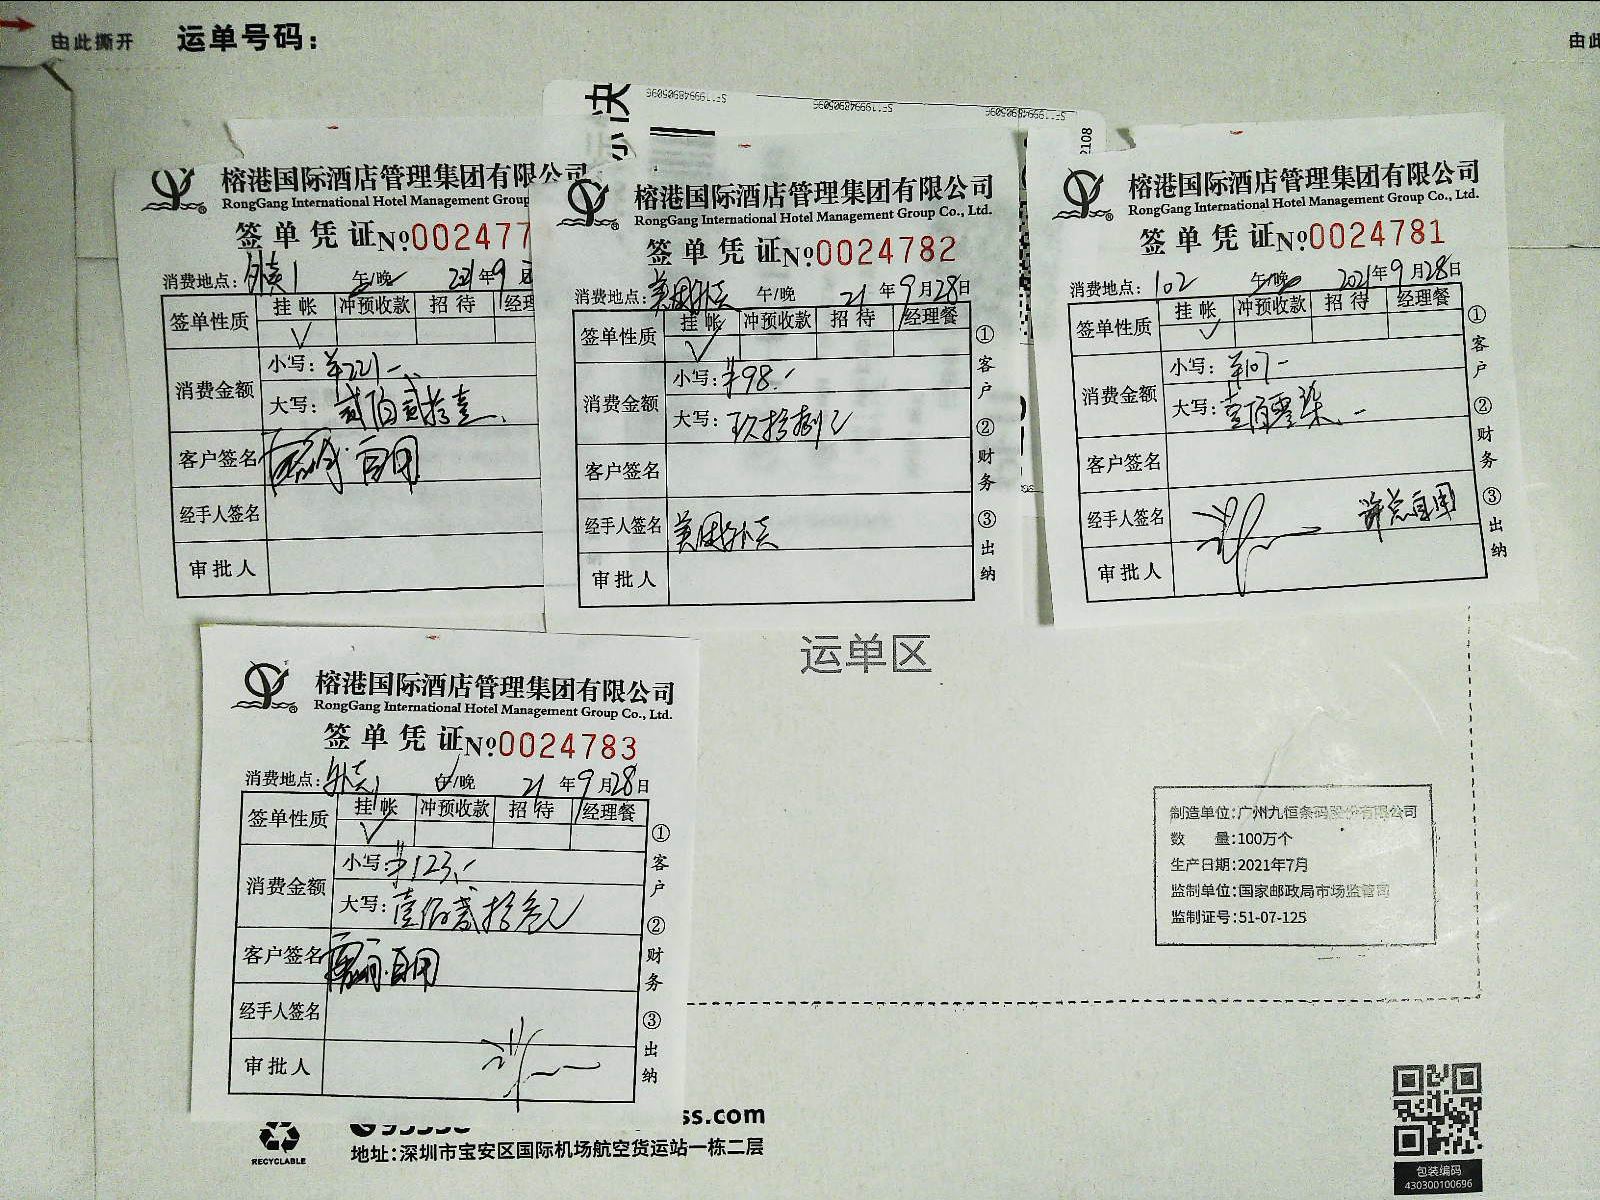 由此撕开
运单号码：
由此
榕港国际酒店管理集团有限公司
RongGang International Hotel Management Group
签单凭证No002477
消费地点：外卖1 午/晚 2021年9月
签单性质 挂帐 冲预收款 招待 经理
消费金额
小写：¥221-
大写：贰佰贰拾壹
客户签名 自用
经手人签名
审批人
榕港国际酒店管理集团有限公司
RongGang International Hotel Management Group Co., Ltd.
签单凭证No0024782
消费地点：美团外卖 午/晚 21年9月28日
签单性质 挂帐 冲预收款 招待 经理餐
消费金额
小写：¥98.-
大写：玖拾捌元
客户签名
经手人签名 美团外卖
审批人
①客户 ②财务 ③出纳
榕港国际酒店管理集团有限公司
RongGang International Hotel Management Group Co., Ltd.
签单凭证No0024781
消费地点：102 午/晚 2021年9月28日
签单性质 挂帐 冲预收款 招待 经理餐
消费金额
小写：¥107-
大写：壹佰零柒
客户签名
经手人签名 许总自用
审批人
①客户 ②财务 ③出纳
运单区
榕港国际酒店管理集团有限公司
RongGang International Hotel Management Group Co., Ltd.
签单凭证No0024783
消费地点：外卖1 午/晚 21年9月28日
签单性质 挂帐 冲预收款 招待 经理餐
消费金额
小写：¥123.-
大写：壹佰贰拾叁元
客户签名 自用
经手人签名
审批人
①客户 ②财务 ③出纳
制造单位：广州九恒条码股份有限公司
数 量：100万个
生产日期：2021年7月
监制单位：国家邮政局市场监管司
监制证号：51-07-125
RECYCLABLE
ss.com
地址：深圳市宝安区国际机场航空货运站一栋二层
包装编码
430300100696